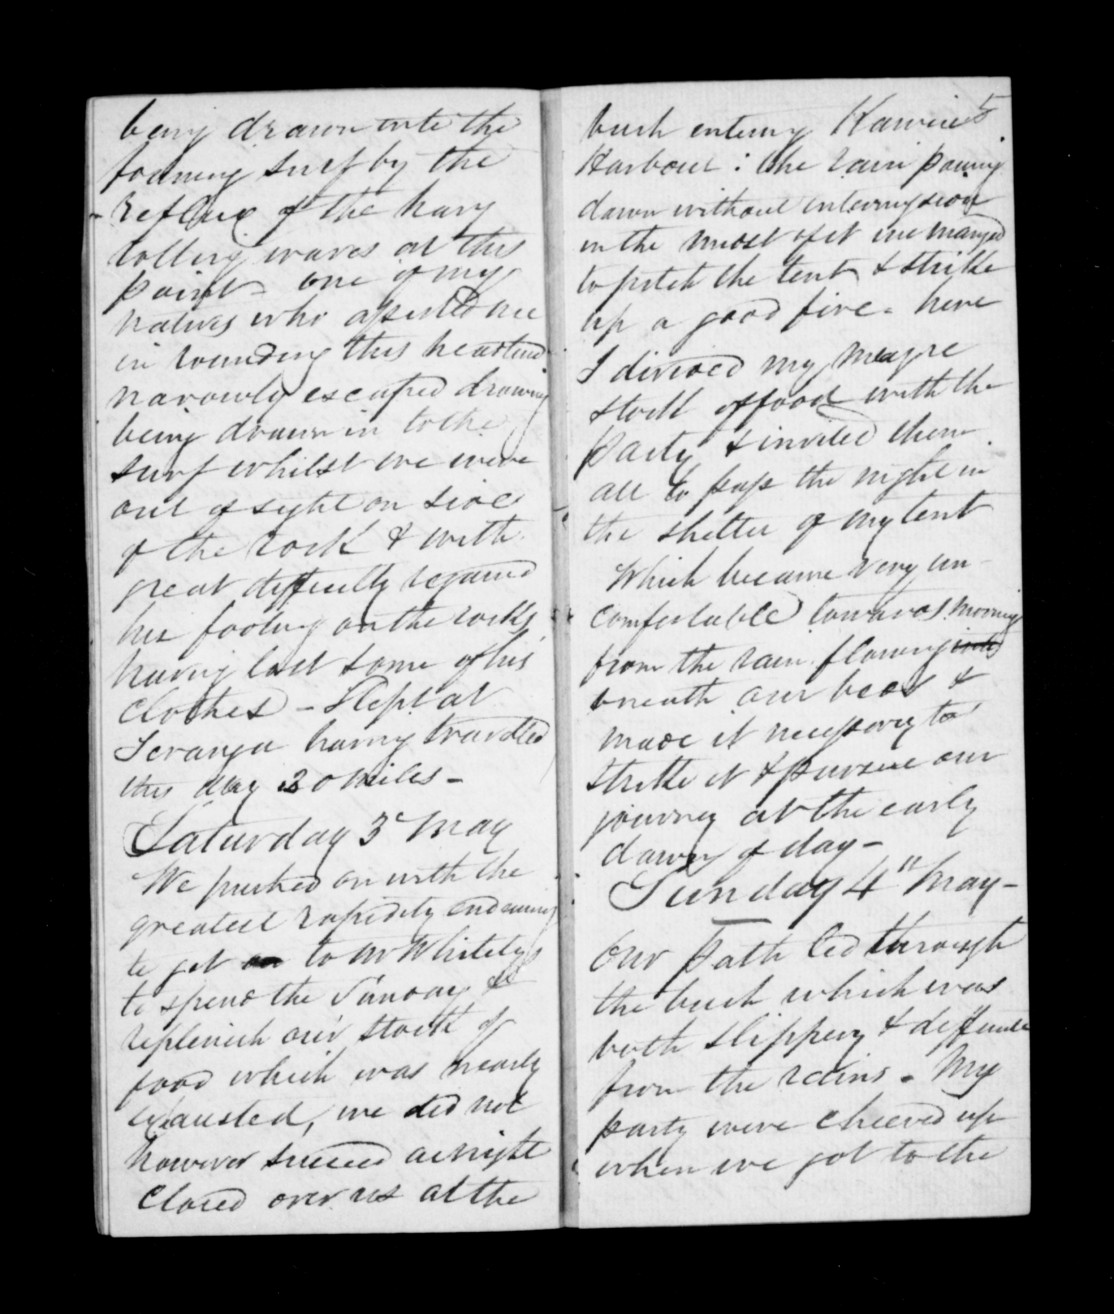 being drawn into the
foaming surf by the
reflux of the heavy
rolling waves at this
point - one of my
natives who assisted me
in rounding this headland
narowly escaped drowning
being drawn in to the
surf whilst we were
out of sight on side
of the rock & with
great difficulty regained
his footing on the rocks
having lost some of his
clothes - Slept at
having travelled
this day 30 miles -
Saturday 3d May
We pushed on with the
greatest rapidity endeavoring
to get to Mr Whiteley's
to spend the Sunday &
replenish our stock of
food which was nearly
exausted, we did not
however succeed as night
closed over us at the
5
bush entering Kawia
Harbour : the rain pouring
down without intermission
in the midst of it we managed
to pitch the tent & strike
up a good fire - here
I divided my meagre
stock of food with the
party & invited them
all to pass the night in
the shelter of my tent
Which became very un-
comfortable towards morning
from the rain flowing
bneath our beds &
made it necessary to
strike it & pursue our
journey at the early
dawn of day -
Sunday 4th May -
Our path led through
the bush which was
both slippery & difficult
from the rains - My
party were cheered up
when we got to the